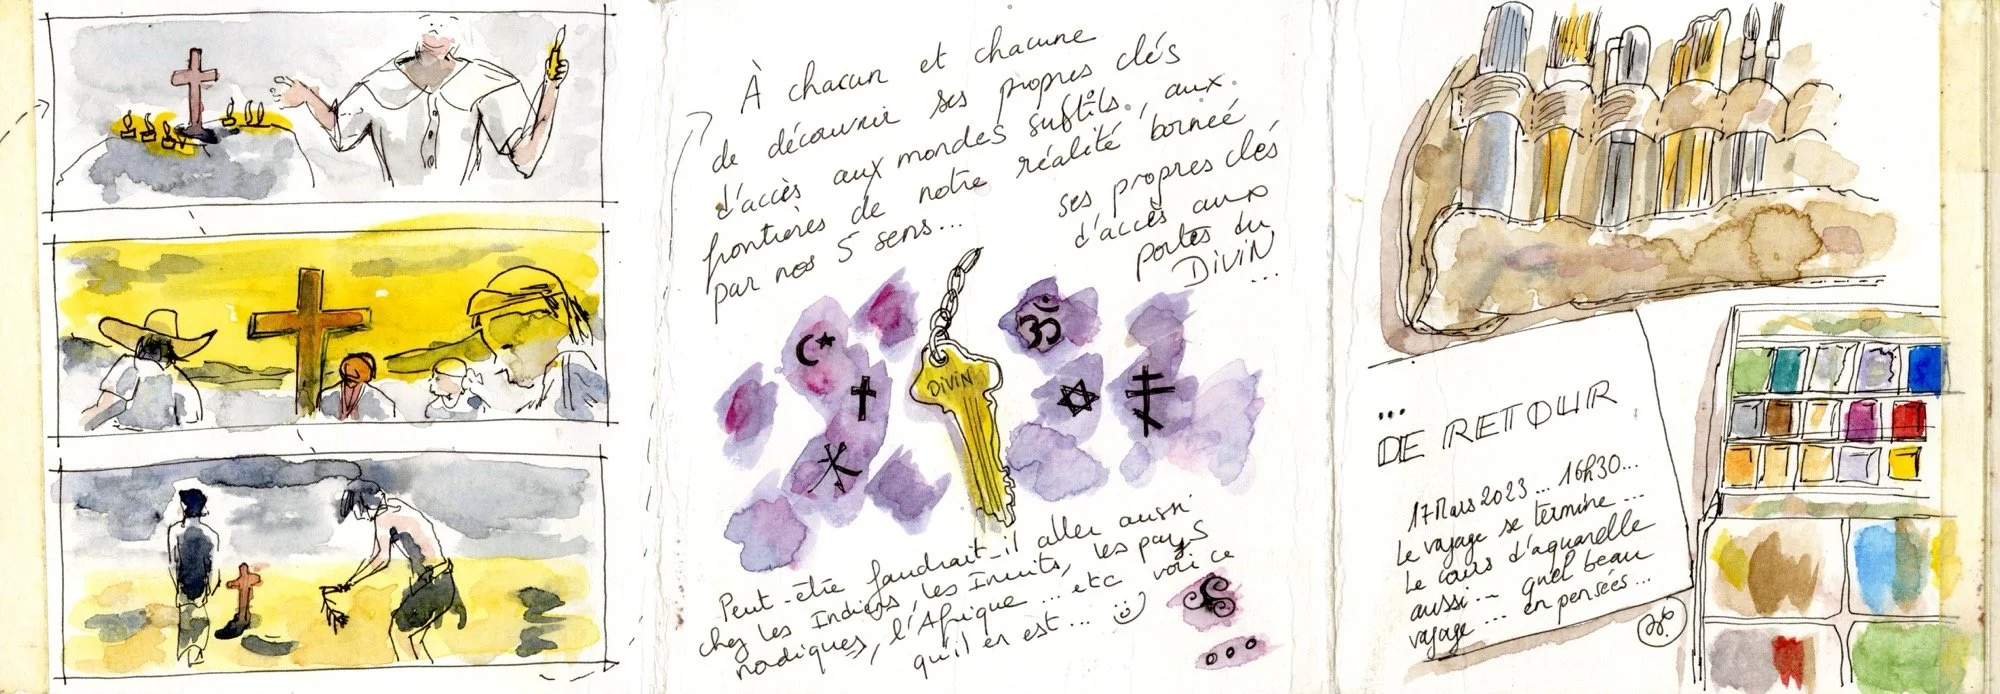 À chacun et chacune
de découvrir ses propres clés
d'accès aux mondes subtils, aux
frontières de notre réalité bornée
par nos 5 sens...
ses propres clés
d'accès aux
portes du
DiViN
...
DiViN
Peut-être faudrait-il aller aussi
chez les Indiens, les Inuits, les pays
nordiques, l'Afrique... etc voir ce
qu'il en est...
...
DE RETOUR
17 Mars 2023... 16h30...
Le voyage se termine...
Le cours d'aquarelle
aussi... quel beau
voyage... en pensées...